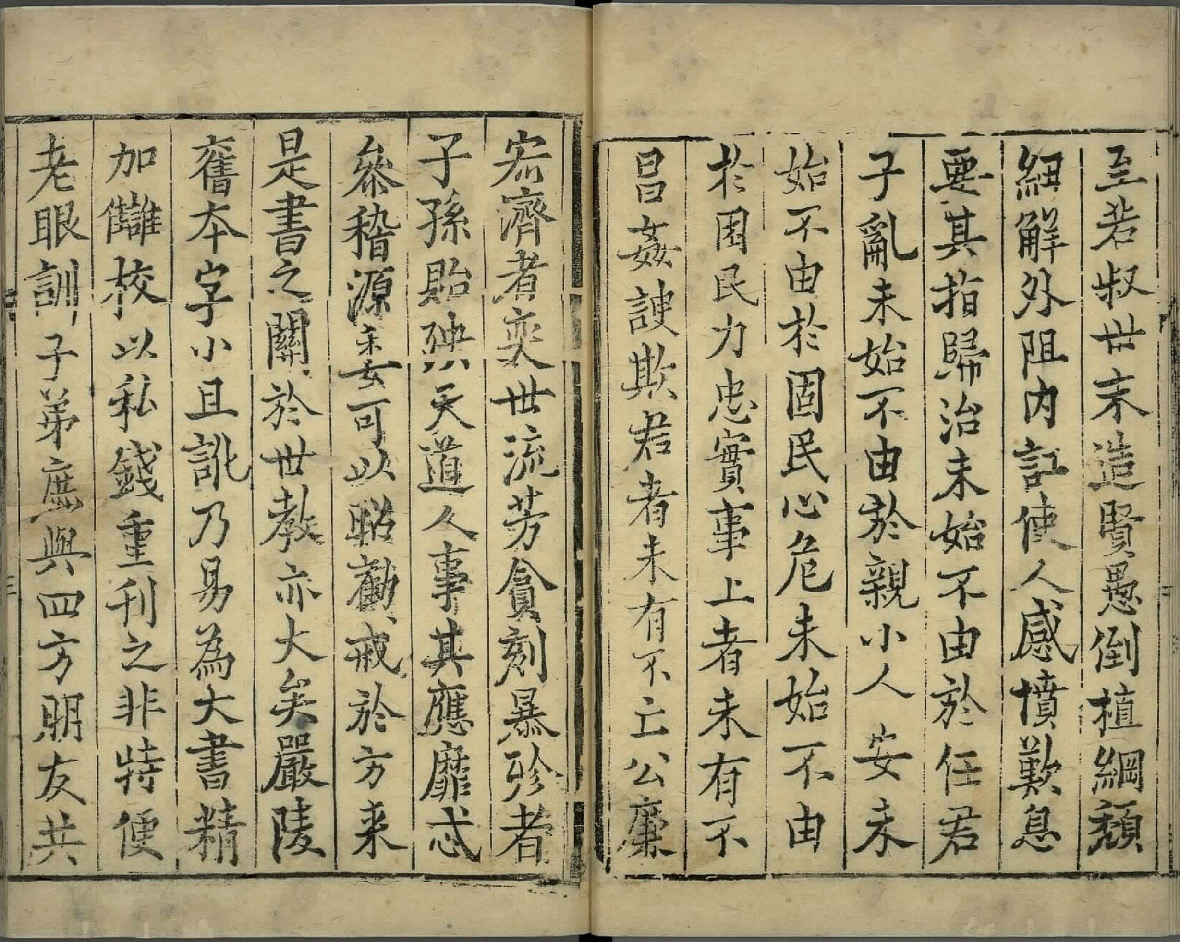 至若叔世末造賢愚倒植綱頽
紐解外阻內訌使人感憤歎息
要其指歸治未始不由於任君
子亂未始不由於親小人安未
始不由於固民心危未始不由
於困民力忠實事上者未有不
昌姦諛欺君者未有不亡公廉
宏濟者奕世流芳貪刻暴殄者
子孫貽殃天道人事其應靡忒
叅稽源委可以昭勸戒於方来
是書之關於世教亦大矣嚴陵
舊本字小且訛乃易為大書精
加讎校以私錢重刊之非特便
老眼訓子弟庶與四方朋友共